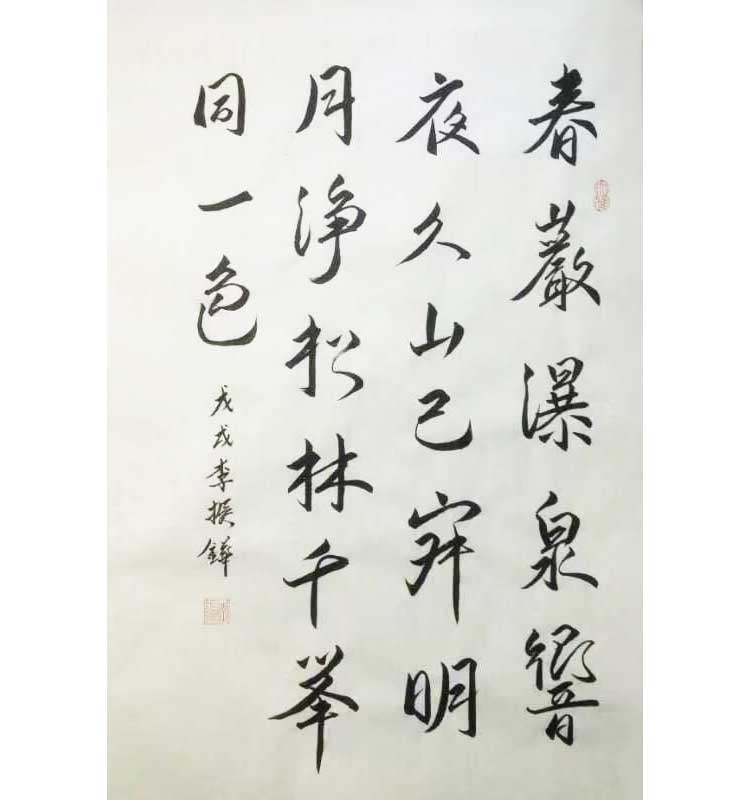 春巖瀑泉響
夜久山已寂明
月淨松林千峯
同一色
戊戌李振鏵